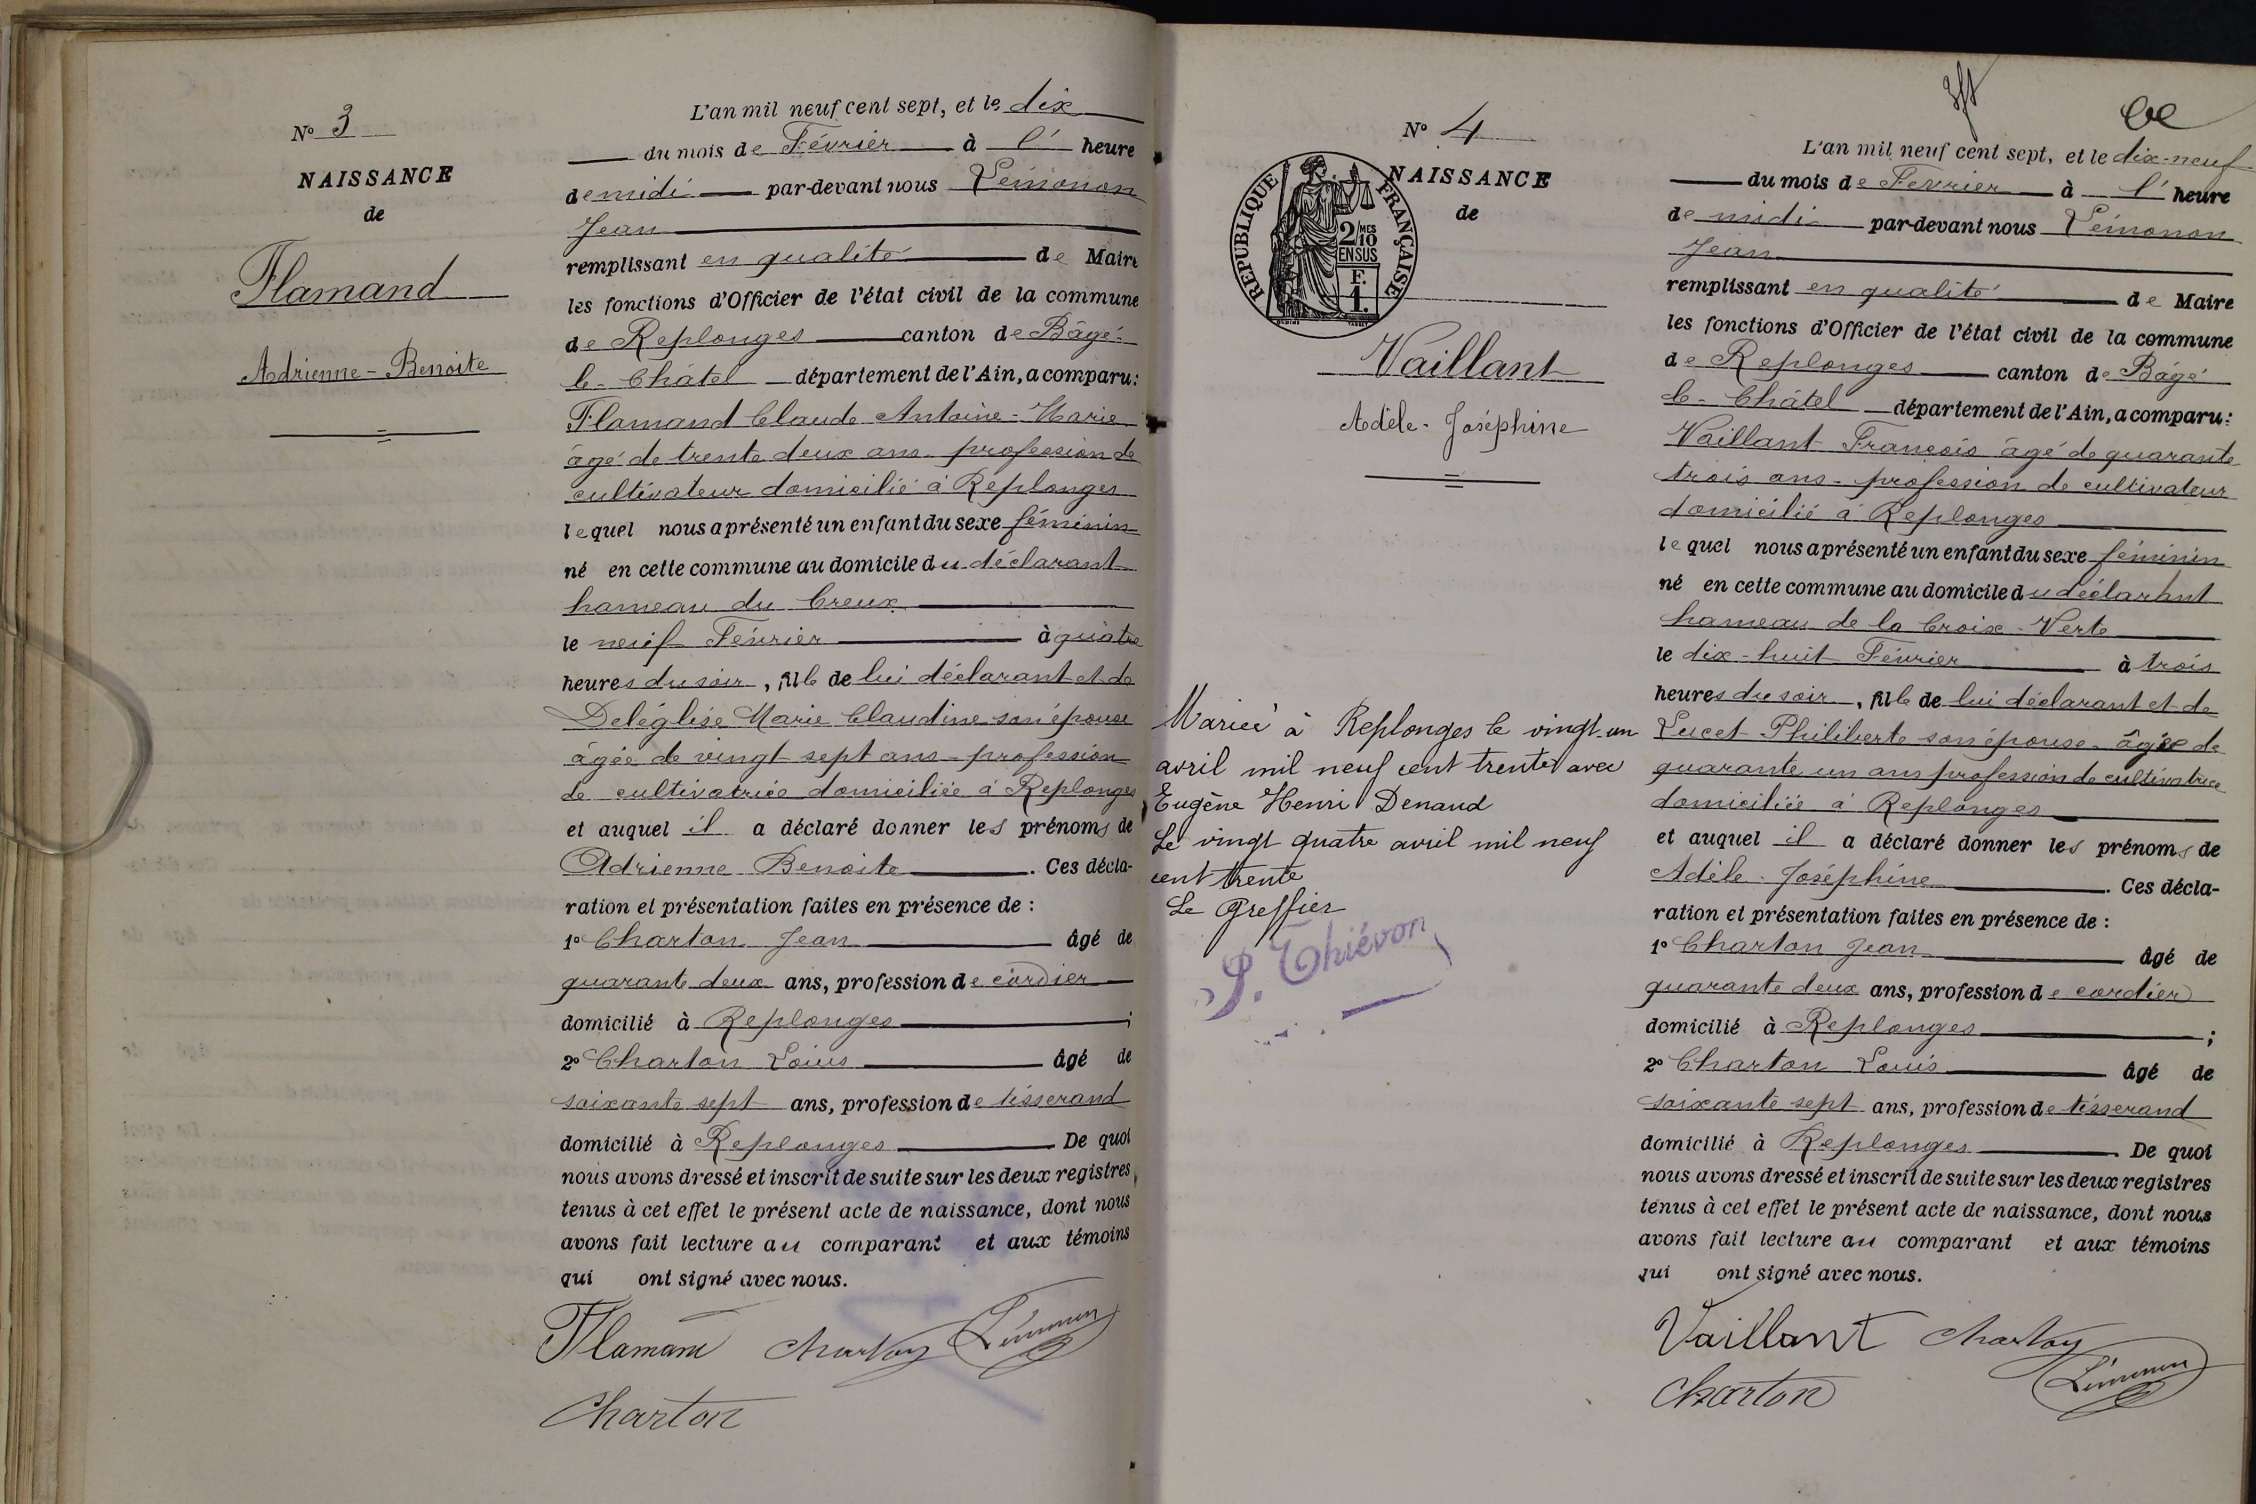 N° 3
NAISSANCE
de
Flamand
Adrienne - Benoite
L'an mil neuf cent sept, et le dix
du mois de Février à l' heure
de midi par-devant nous Lémonon
Jean
remplissant en qualité de Maire
les fonctions d'Officier de l'état civil de la commune
de Replonges canton de Bâgé-
le-Châtel département de l'Ain, a comparu:
Flamand Claude Antoine-Marie
âgé de trente deux ans profession de
cultivateur domicilié à Replonges
lequel nous a présenté un enfant du sexe féminin
né en cette commune au domicile du déclarant
hameau du Creux
le neuf Février à quatre
heures du soir, fille de lui déclarant et de
Deléglise Marie Claudine son épouse
âgée de vingt sept ans profession
de cultivatrice domiciliée à Replonges
et auquel il a déclaré donner les prénoms de
Adrienne Benoite. Ces décla-
ration et présentation faites en présence de :
1° Charton Jean âgé de
quarante deux ans, profession de cordier
domicilié à Replonges ;
2° Charton Loius âgé de
soixante sept ans, profession de tisserand
domicilié à Replonges. De quoi
nous avons dressé et inscrit de suite sur les deux registres
tenus à cet effet le présent acte de naissance, dont nous
avons fait lecture au comparant et aux témoins
qui ont signé avec nous.
Flamand Charton Lémonon
Charton
N° 4
NAISSANCE
de
REPUBLIQUE FRANÇAISE
2/10 MES
EN SUS
F.
1.
Vaillant
Adèle - Joséphine
Mariée à Replonges le vingt-un
avril mil neuf cent trente avec
Eugène Henri Denaud
Le vingt quatre avril mil neuf
cent trente
Le Greffier
P. Thiévon
L'an mil neuf cent sept, et le dix-neuf
du mois de Février à l' heure
de midi par-devant nous Lémonon
Jean
remplissant en qualité de Maire
les fonctions d'Officier de l'état civil de la commune
de Replonges canton de Bâgé
le-Châtel département de l'Ain, a comparu:
Vaillant François âgé de quarante
trois ans - profession de cultivateur
domicilié à Replonges
lequel nous a présenté un enfant du sexe féminin
né en cette commune au domicile du déclarant
hameau de la Croix-Verte
le dix-huit Février à trois
heures du soir, fille de lui déclarant et de
Lucet Philiberte son épouse - âgée de
quarante un ans profession de cultivatrice
domiciliée à Replonges
et auquel il a déclaré donner les prénoms de
Adèle - Joséphine. Ces décla-
ration et présentation faites en présence de :
1° Charton Jean âgé de
quarante deux ans, profession de cordier
domicilié à Replonges ;
2° Charton Louis âgé de
soixante sept ans, profession de tisserand
domicilié à Replonges. De quoi
nous avons dressé et inscrit de suite sur les deux registres
tenus à cet effet le présent acte de naissance, dont nous
avons fait lecture au comparant et aux témoins
qui ont signé avec nous.
Vaillant Charton
Lémonon
Charton